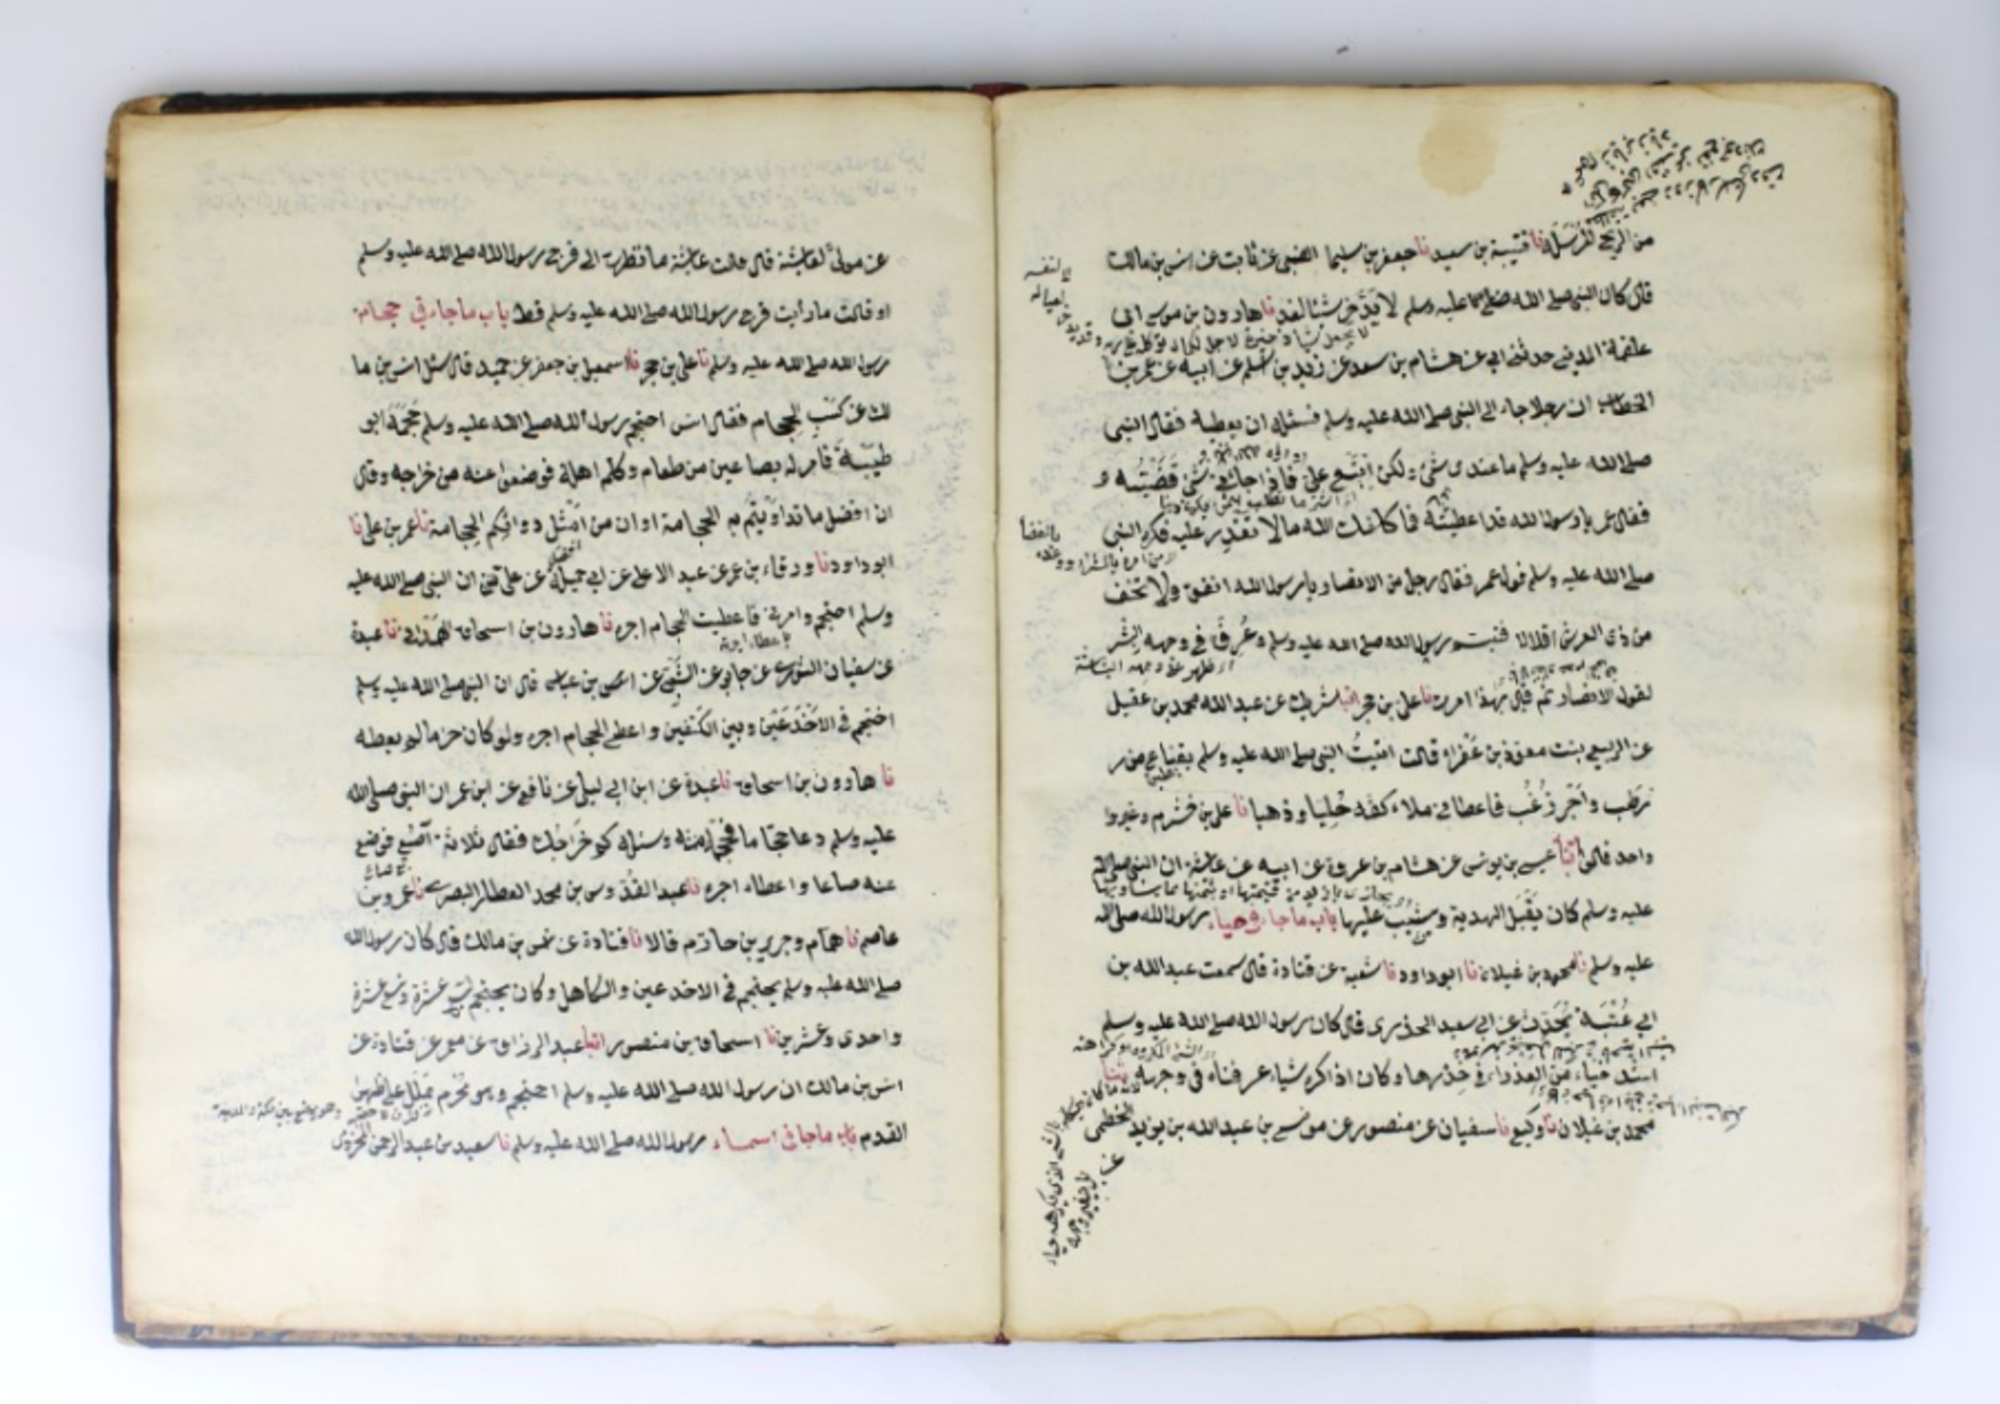 من الريح المرسلة نا قتيبة بن سعيد نا جعفر بن سليما الضبى عن ثابت عن انس بن مالك
قال كان النبى صلى الله عليه وسلم لا يدخر شئا لغد نا هارون بن موسى ابى
علقمة المدينى حدثنى ابى عن هشام بن سعد عن زيد بن اسلم عن ابيه عن عمر بن
الخطاب ان رجلا جاء الى النبى صلى الله عليه وسلم فسئله ان يعطيه فقال النبى
صلى الله عليه وسلم ما عندى شئ ولكن ابتع على فاذا جاءنى شئ قضيته و
فقال عمر يا رسول الله قد اعطيته فما كلفك الله مالا تقدر عليه فكره النبى
صلى الله عليه وسلم قول عمر فقال رجل من الانصار يا رسول الله انفق ولا تخف
من ذى العرش اقلالا فتبسم رسول الله صلى الله عليه وسلم وعرف فى وجهه البشر
لقول الانصار ثم قال بهذا امرت نا على بن حجر انبا شريك عن عبد الله محمد بن عقيل
عن الربيع بنت معوذ بن عفراء قالت اتيت النبى صلى الله عليه وسلم بقناع من ر
رطب واجر زغب فاعطانى ملاء كفه حليا وذهبا نا على بن خشرم وغير وا
واحد قالوا انبا عيسى بن يونس عن هشام بن عروة عن ابيه عن عائشة ان النبى صلى الله
عليه وسلم كان يقبل الهدية ويثيب عليها باب ما جاء فى حياء رسول الله صلى الله
عليه وسلم نا محمود بن غيلان نا ابو داود نا شعبة عن قتادة قال سمعت عبد الله بن
ابى عتبة يحدث عن ابى سعيد الخذرى قال كان رسول الله صلى الله عليه وسلم
اشد حياء من العذراء فى خذرها وكان اذا كره شياء عرفناه فى وجهه ثنا
محمد بن غيلان نا وكيع نا سفيان عن منصور عن موسى بن عبد الله بن يزيد الخطمى
عن مولى لعائشة قال قالت عائشة ما نظرت الى فرج رسول الله صلى الله عليه وسلم
او قالت ما رأيت فرج رسول الله صلى الله عليه وسلم قط باب ما جاء فى حجامة
رسول الله صلى الله عليه وسلم نا على بن حجر نا اسمعيل بن جعفر عن حميد قال سئل انس بن ما
لك عن كسب الحجام فقال انس احتجم رسول الله صلى الله عليه وسلم حجمه ابو
طيبة فامر له بصاعين من طعام وكلم اهله فوضعوا عنه من خراجه وقال
ان افضل ما تداويتم به الحجامة او ان من امثل دوائكم الحجامة نا عمر بن على نا
ابو داود نا ورقاء بن عمر عن عبد الاعلى عن ابى جميلة عن على ان النبى صلى الله عليه
وسلم احتجم وامرنى فاعطيت الحجام اجره نا هارون بن اسحاق الهمدانى نا عبدة
عن سفيان الثورى عن جابر عن الشعبى عن ابن عباس قال ان النبى صلى الله عليه وسلم
احتجم فى الاخدعين وبين الكتفين واعطى الحجام اجره ولو كان حرما لم يعطه
نا هارون بن اسحاق نا عبدة عن ابن ابى ليلى عن نافع عن ابن عمر ان النبى صلى الله
عليه وسلم دعا حجاما فحجمه وسئله كم خراجك فقال ثلاثة آصع فوضع
عنه صاعا واعطاه اجره نا عبد القدوس بن محمد العطار البصرى نا عمرو بن
عاصم نا همام وجرير بن حازم قالا نا قتادة عن انس بن مالك قال كان رسول الله
صلى الله عليه وسلم يحتجم فى الاخدعين والكاهل وكان يحتجم لسبع عشرة وتسع عشرة
واحدى وعشرين نا اسحاق بن منصور انبا عبد الرزاق عن معمر عن قتادة عن
انس بن مالك ان رسول الله صلى الله عليه وسلم احتجم وهو محرم بملل على ظهر
وهو موضع بين مكة والمدينة
القدم باب ما جاء فى اسماء رسول الله صلى الله عليه وسلم نا سعيد بن عبد الرحمن المخزومى